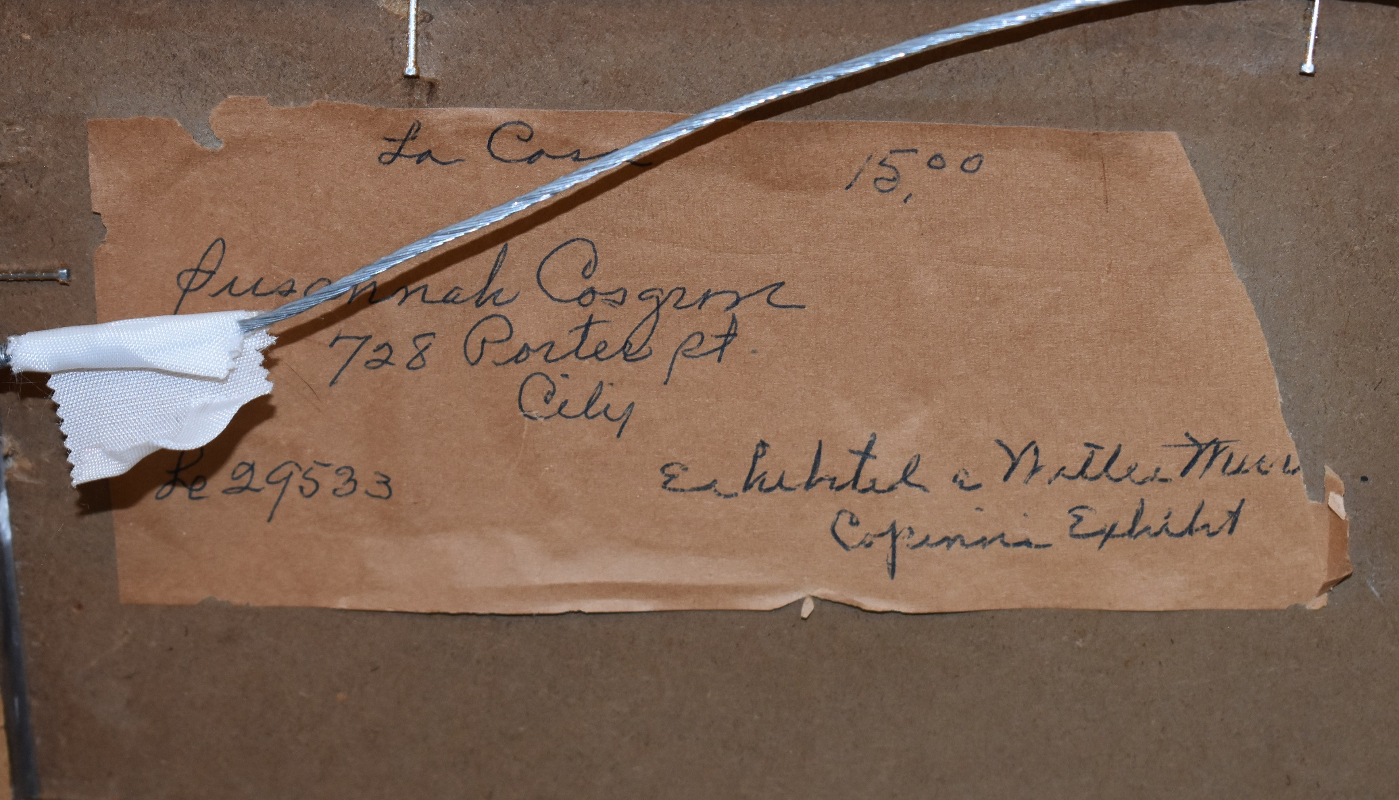 La Casa 15.00
Susannah Cosgrove
728 Porter pt.
City
Le 29533
Exhibited a Witte Mus
Coppinni Exhibit